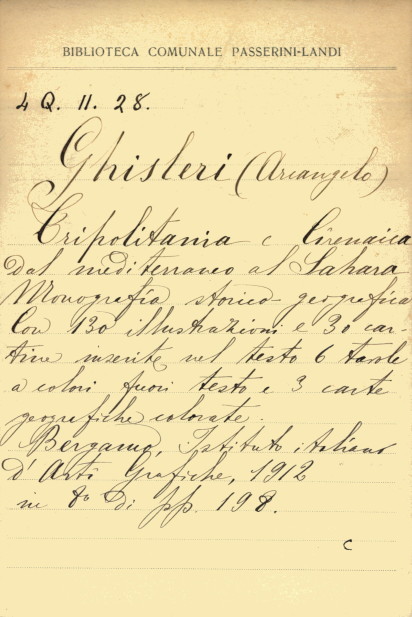 BIBLIOTECA COMUNALE PASSERINI-LANDI
4 Q. 11. 28.
Ghisleri (Arcangelo)
Tripolitania e Cirenaica
Dal mediterraneo al Sahara
Monografia storico-geografica
Con 130 illustrazioni e 30 car-
tine inserite nel testo 6 tavole
a colori fuori testo e 3 carte
geografiche colorate.
Bergamo, Istituto italiano
d'Arti Grafiche, 1912
in 8º di pp. 198.
c